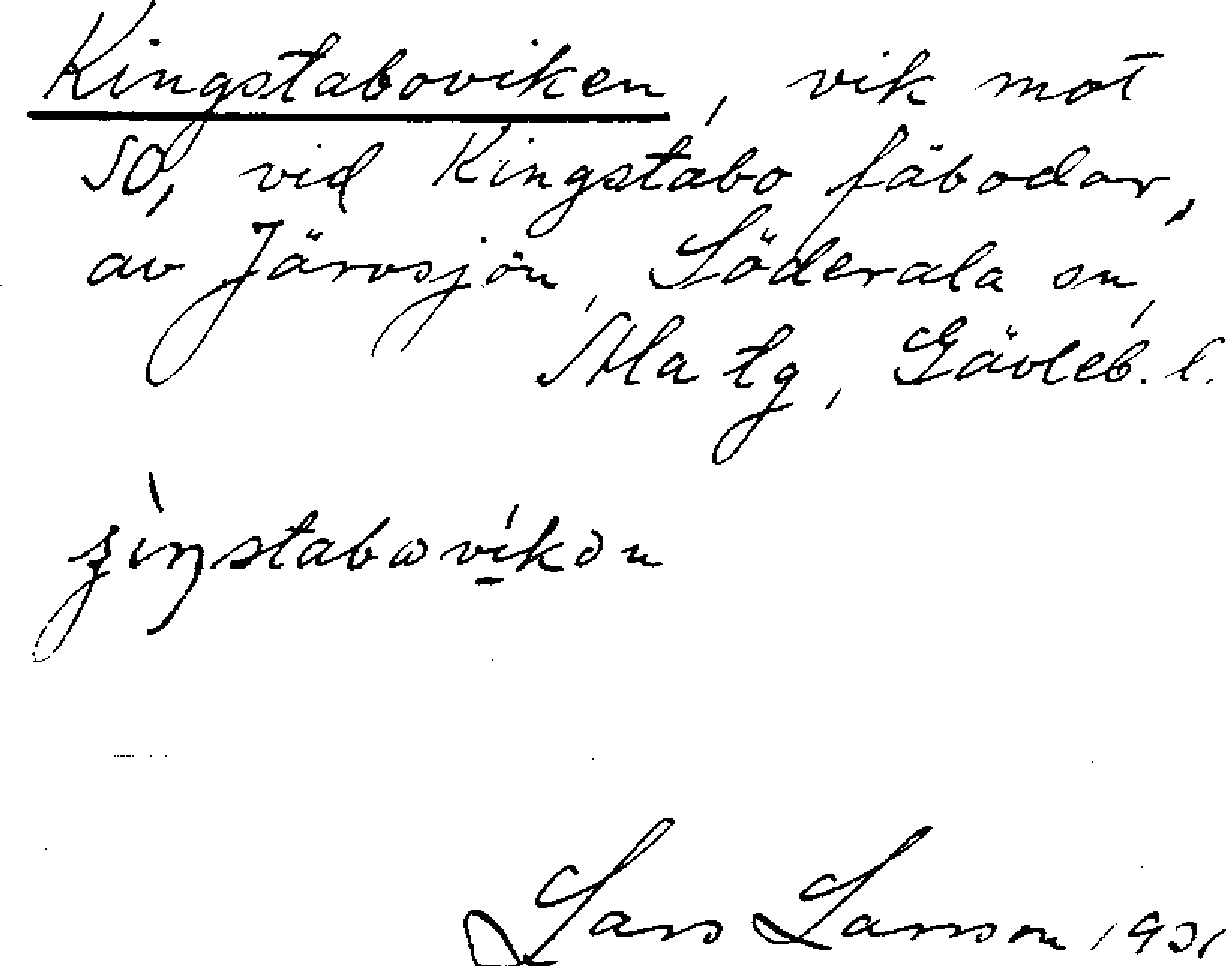 Kingstaboviken, vik mot
SO, vid Kingstabo fäbodar,
av Järvsjön, Söderala sn,
Ala tg, Gävleb. l.
Lars Larsson 1931